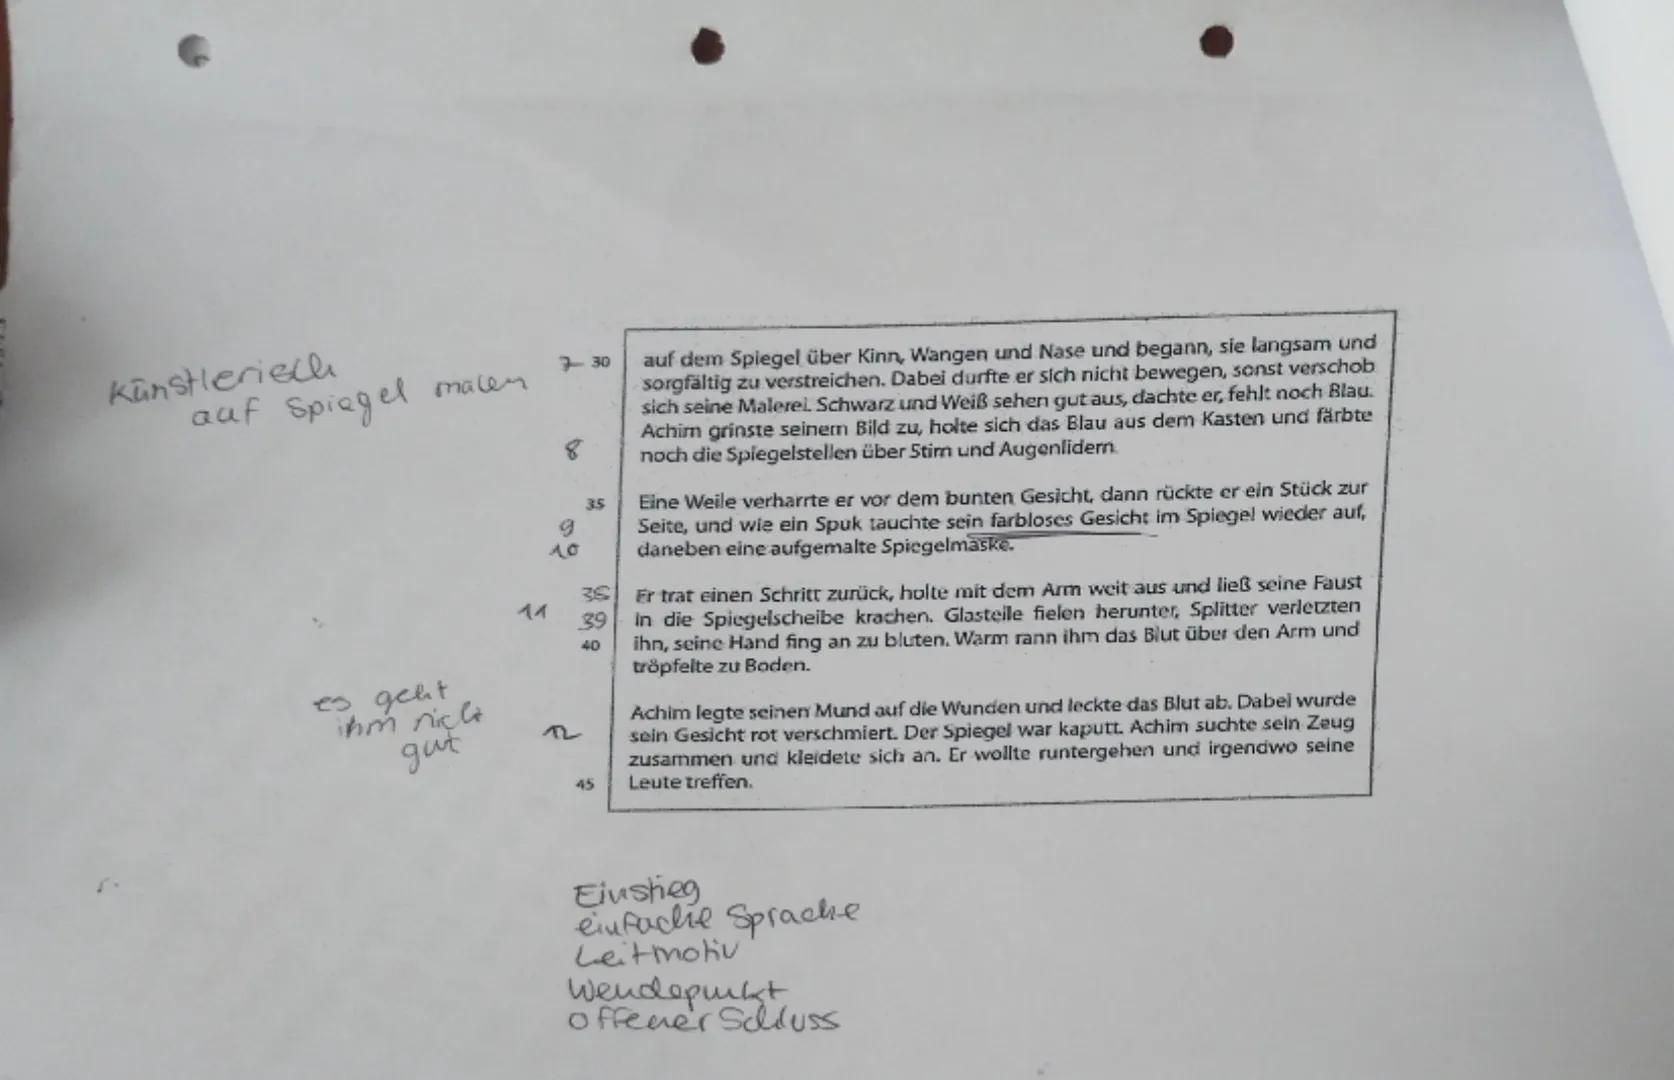 Künstlerisch
auf Spiegel malen
7 30 auf dem Spiegel über Kinn, Wangen und Nase und begann, sie langsam und
sorgfältig zu verstreichen. Dabei durfte er sich nicht bewegen, sonst verschob
sich seine Malerei. Schwarz und Weiß sehen gut aus, dachte er, fehlt noch Blau.
Achim grinste seinem Bild zu, holte sich das Blau aus dem Kasten und färbte
8 noch die Spiegelstellen über Stirn und Augenlidern.
35 Eine Weile verharrte er vor dem bunten Gesicht, dann rückte er ein Stück zur
9 Seite, und wie ein Spuk tauchte sein farbloses Gesicht im Spiegel wieder auf,
10 daneben eine aufgemalte Spiegelmaske.
38 Er trat einen Schritt zurück, holte mit dem Arm weit aus und ließ seine Faust
11 39 in die Spiegelscheibe krachen. Glasteile fielen herunter, Splitter verletzten
40 ihn, seine Hand fing an zu bluten. Warm rann ihm das Blut über den Arm und
tröpfelte zu Boden.
es geht
ihm nicht
gut
Achim legte seinen Mund auf die Wunden und leckte das Blut ab. Dabei wurde
12 sein Gesicht rot verschmiert. Der Spiegel war kaputt. Achim suchte sein Zeug
zusammen und kleidete sich an. Er wollte runtergehen und irgendwo seine
45 Leute treffen.
Einstieg
einfache Sprache
Leitmotiv
Wendepunkt
offener Schluss